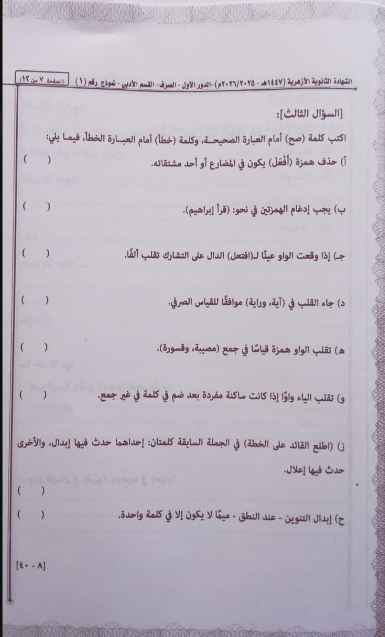 الشهادة الثانوية الأزهرية (١٤٤٧هـ - ٢٠٢٥/٢٠٢٦م) - الدور الأول - الصرف - القسم الأدبي - نموذج رقم (١) (الصفحة ٧ من ١٢)
[السؤال الثالث]:
اكتب كلمة (صح) أمام العبارة الصحيحة، وكلمة (خطأ) أمام العبارة الخطأ، فيما يلي:
أ) حذف همزة (أَفْعَلَ) يكون في المضارع أو أحد مشتقاته. ( )
ب) يجب إدغام الهمزتين في نحو: (قرأ إبراهيم). ( )
جـ) إذا وقعت الواو عينًا لـ(افتعل) الدال على التشارك تقلب ألفًا. ( )
د) جاء القلب في (آية، وراية) موافقًا للقياس الصرفي. ( )
هـ) تقلب الواو همزة قياسًا في جمع (مصيبة، وقسورة). ( )
و) تقلب الياء واوًا إذا كانت ساكنة مفردة بعد ضم في كلمة في غير جمع. ( )
ز) (اطلع القائد على الخطة) في الجملة السابقة كلمتان: إحداهما حدث فيها إبدال، والأخرى
حدث فيها إعلال.
( )
ح) إبدال التنوين - عند النطق - ميمًا لا يكون إلا في كلمة واحدة. ( )
[٨ - ٤٠]